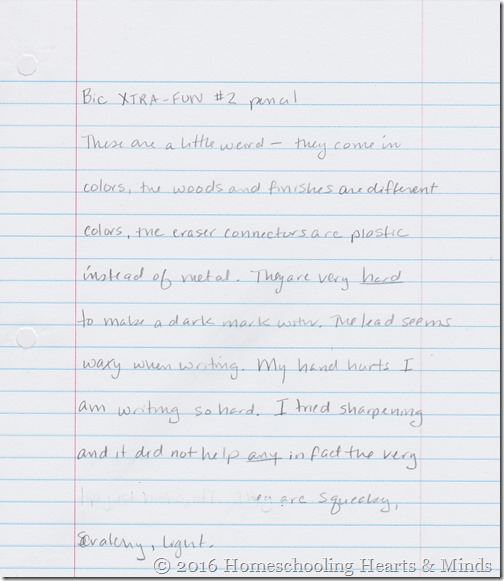 Bic XTRA-FUN #2 pencil
These are a little weird - they come in
colors, the woods and finishes are different
colors, the eraser connectors are plastic
instead of metal. They are very hard
to make a dark mark with. The lead seems
waxy when writing. My hand hurts I
am writing so hard. I tried sharpening
and it did not help any in fact the very
ey are squeeky,
light.
© 2016 Homeschooling Hearts & Minds